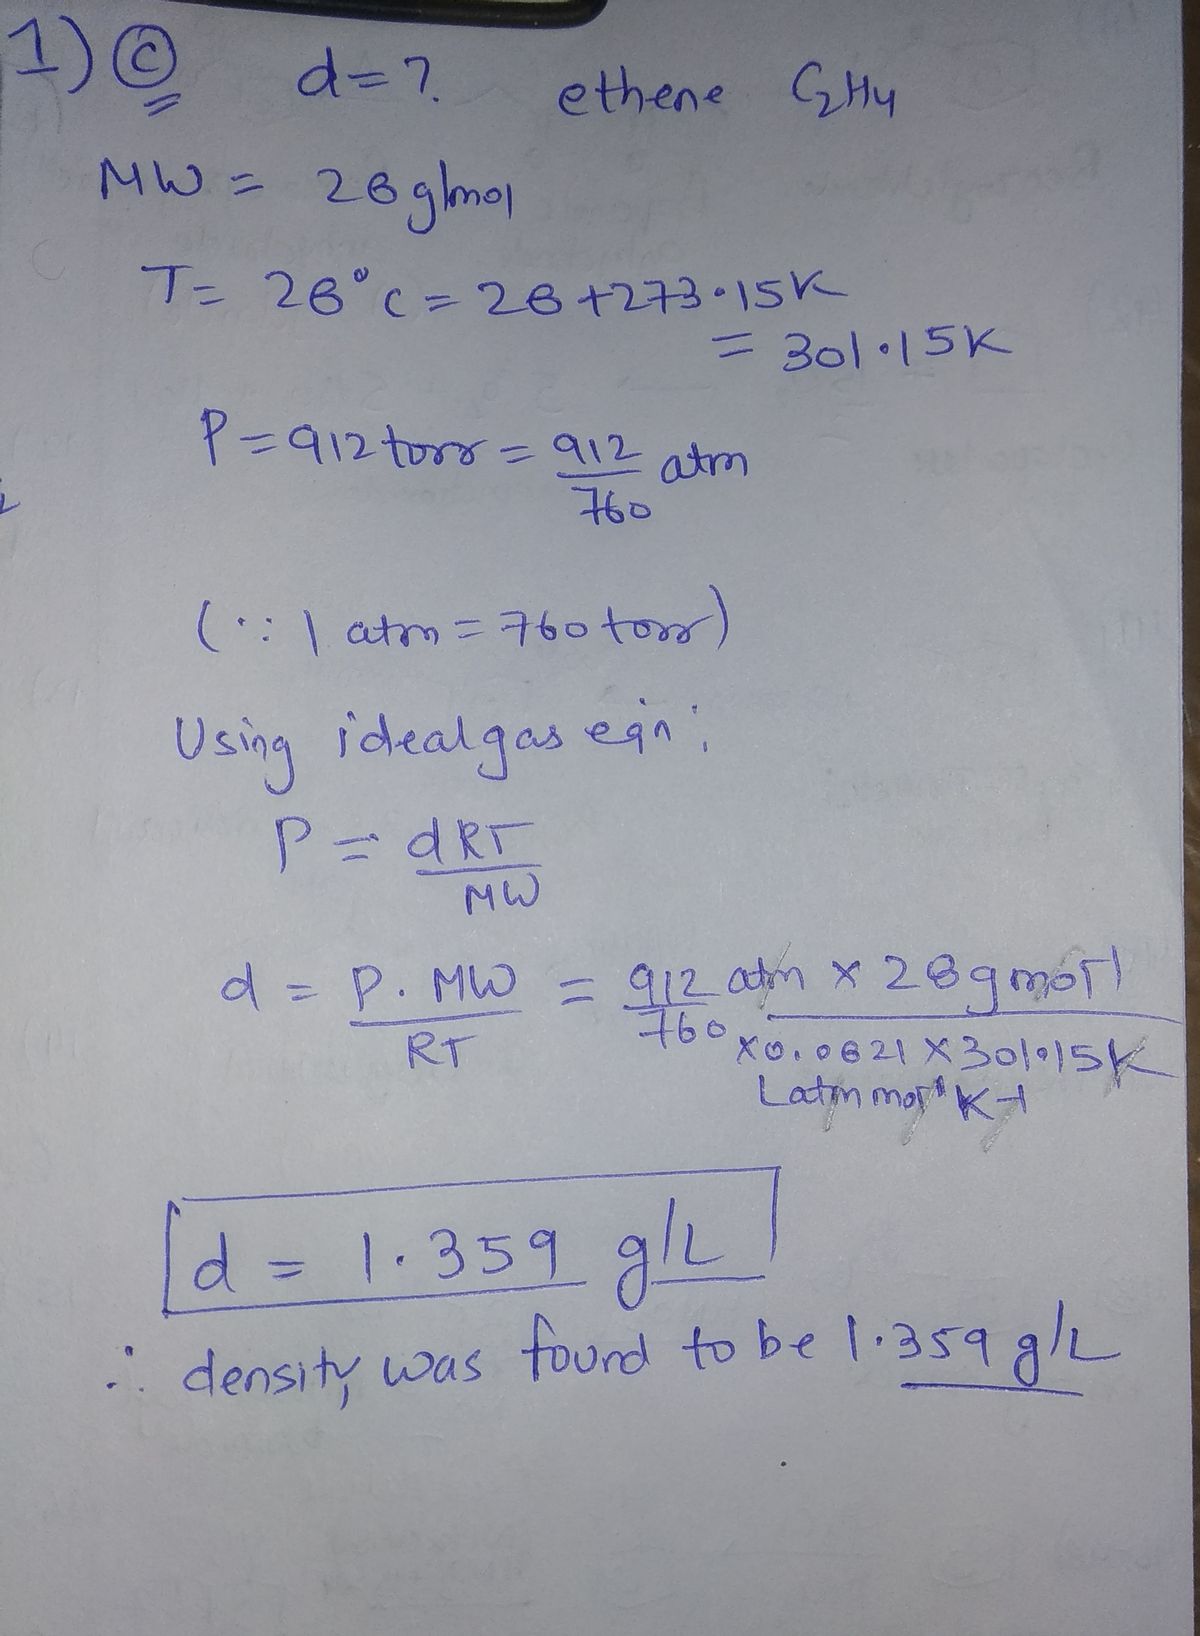 1) ⓒ d = ? ethene C₂H₄
MW = 28 g/mol
T = 28°C = 28 + 273.15K
= 301.15K
P = 912 torr = 912/760 atm
(∵ 1 atm = 760 torr)
Using ideal gas eqn:
P = dRT/MW
d = P. MW/RT = 912/760 atm × 28 g mol⁻¹
× 0.0821 × 301.15K
L atm mol⁻¹ K⁻¹
d = 1.359 g/L
∴ density was found to be 1.359 g/L